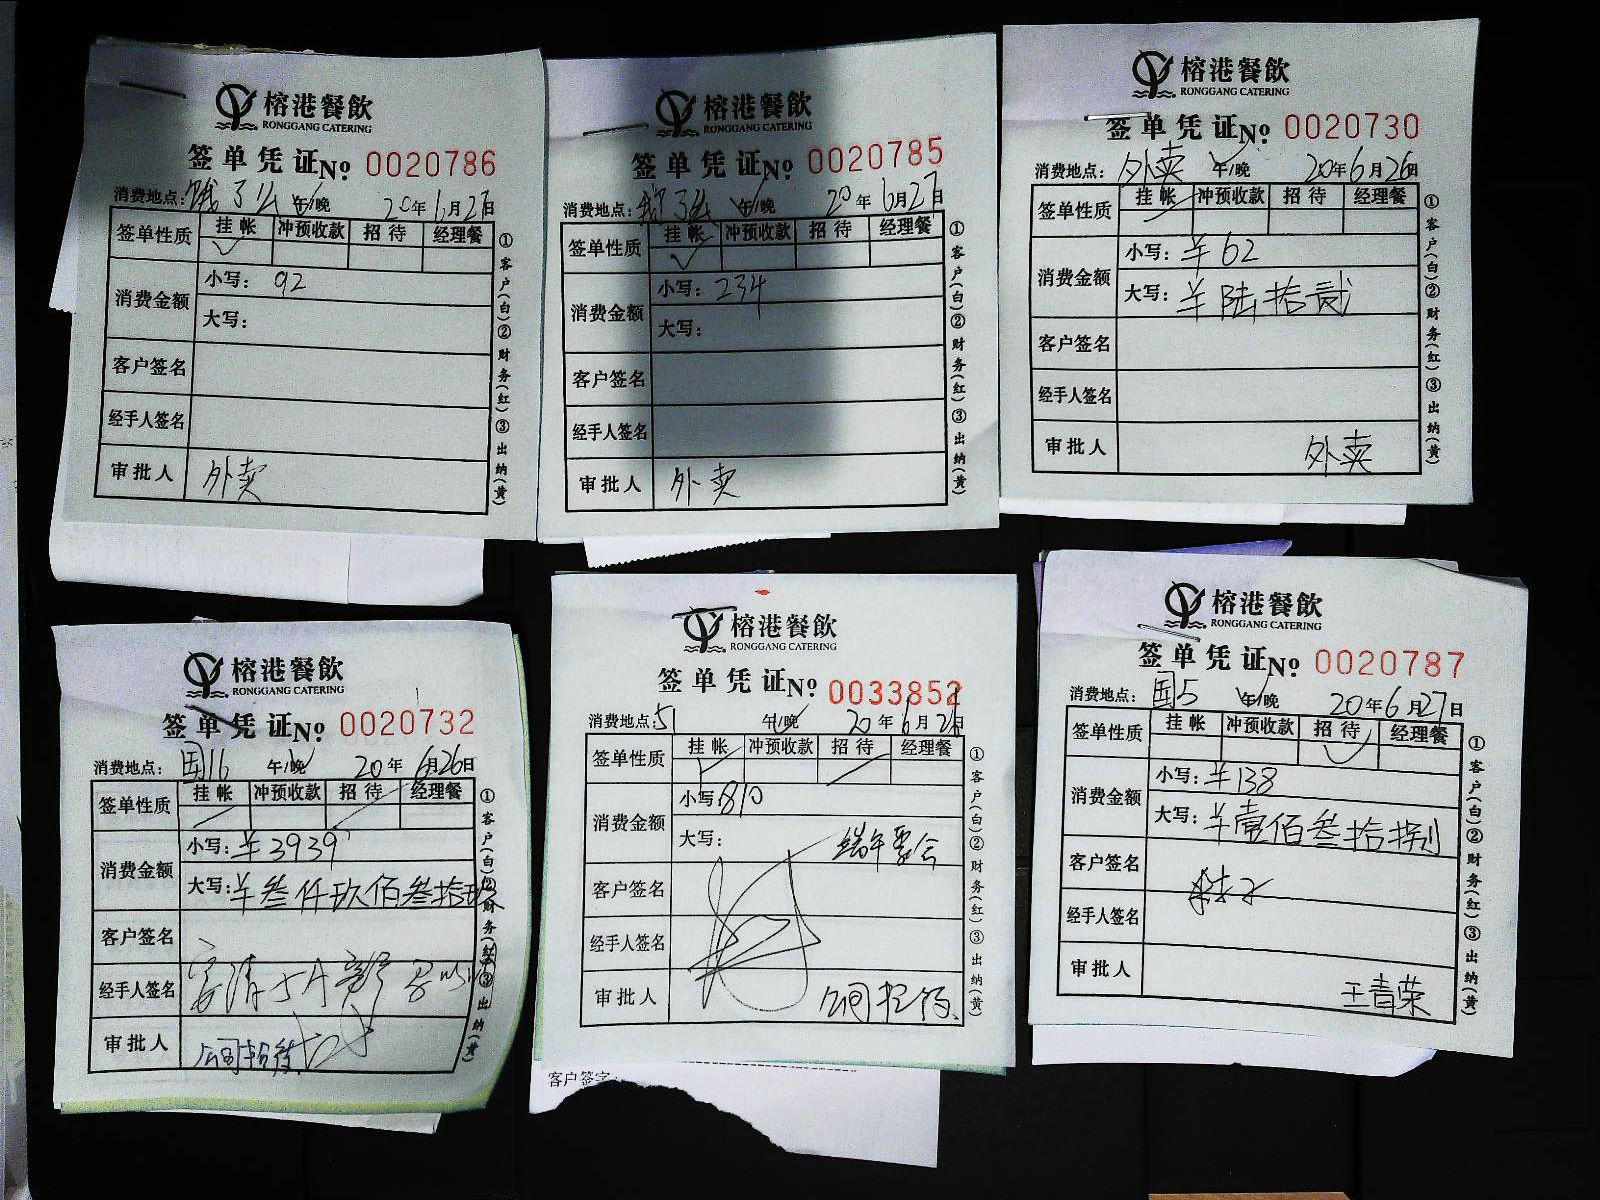 榕港餐飲
RONGGANG CATERING
签单凭证 No 0020786
消费地点: 饿了么 午/晚 20年6月27日
签单性质 挂帐 冲预收款 招待 经理餐
消费金额 小写: 92
大写:
客户签名
经手人签名
审批人 外卖
①客户(白)②财务(红)③出纳(黄)
榕港餐飲
RONGGANG CATERING
签单凭证 No 0020785
消费地点: 饿了么 午/晚 20年6月27日
签单性质 挂帐 冲预收款 招待 经理餐
消费金额 小写: 234
大写:
客户签名
经手人签名
审批人 外卖
①客户(白)②财务(红)③出纳(黄)
榕港餐飲
RONGGANG CATERING
签单凭证 No 0020730
消费地点: 外卖 午/晚 20年6月26日
签单性质 挂帐 冲预收款 招待 经理餐
消费金额 小写: ¥62
大写: ¥陆拾贰
客户签名
经手人签名
审批人 外卖
①客户(白)②财务(红)③出纳(黄)
榕港餐飲
RONGGANG CATERING
签单凭证 No 0020732
消费地点: 国16 午/晚 20年6月26日
签单性质 挂帐 冲预收款 招待 经理餐
消费金额 小写: ¥3939
大写: ¥叁仟玖佰叁拾玖
客户签名
经手人签名
审批人 公司招待
①客户(白)②财务(红)③出纳(黄)
榕港餐飲
RONGGANG CATERING
签单凭证 No 0033852
消费地点: 51 午/晚 20年6月日
签单性质 挂帐 冲预收款 招待 经理餐
消费金额 小写: 810
大写: 端午
客户签名
经手人签名
审批人
①客户(白)②财务(红)③出纳(黄)
客户签字:
榕港餐飲
RONGGANG CATERING
签单凭证 No 0020787
消费地点: 国5 午/晚 20年6月27日
签单性质 挂帐 冲预收款 招待 经理餐
消费金额 小写: ¥138
大写: ¥壹佰叁拾捌
客户签名
经手人签名
审批人 王青荣
①客户(白)②财务(红)③出纳(黄)